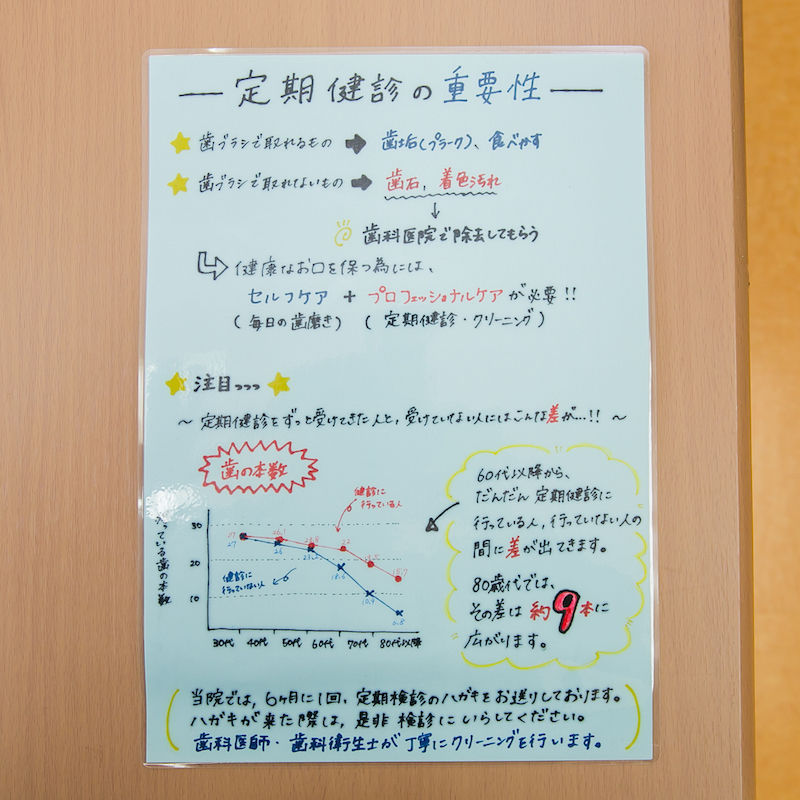 定期健診の重要性
歯ブラシで取れるもの → 歯垢(プラーク)、食べかす
歯ブラシで取れないもの → 歯石、着色汚れ
↓
歯科医院で除去してもらう
健康なお口を保つ為には、
セルフケア + プロフェッショナルケアが必要!!
(毎日の歯磨き) (定期健診・クリーニング)
注目っっっ
～定期健診をずっと受けてきた人と、受けていない人にはこんな差が…!!～
歯の本数
健診に
行っている人
ている歯の本数
30
20
10
27
27
26
22
18.6
10.9
15.7
6.8
健診に
行っていない人
30代 40代 50代 60代 70代 80代以降
60代以降から、
だんだん定期健診に
行っている人、行っていない人の
間に差が出てきます。
80歳代では、
その差は約9本に
広がります。
当院では、6ヶ月に1回、定期検診のハガキをお送りしております。
ハガキが来た際は、是非検診にいらしてください。
歯科医師・歯科衛生士が丁寧にクリーニングを行います。